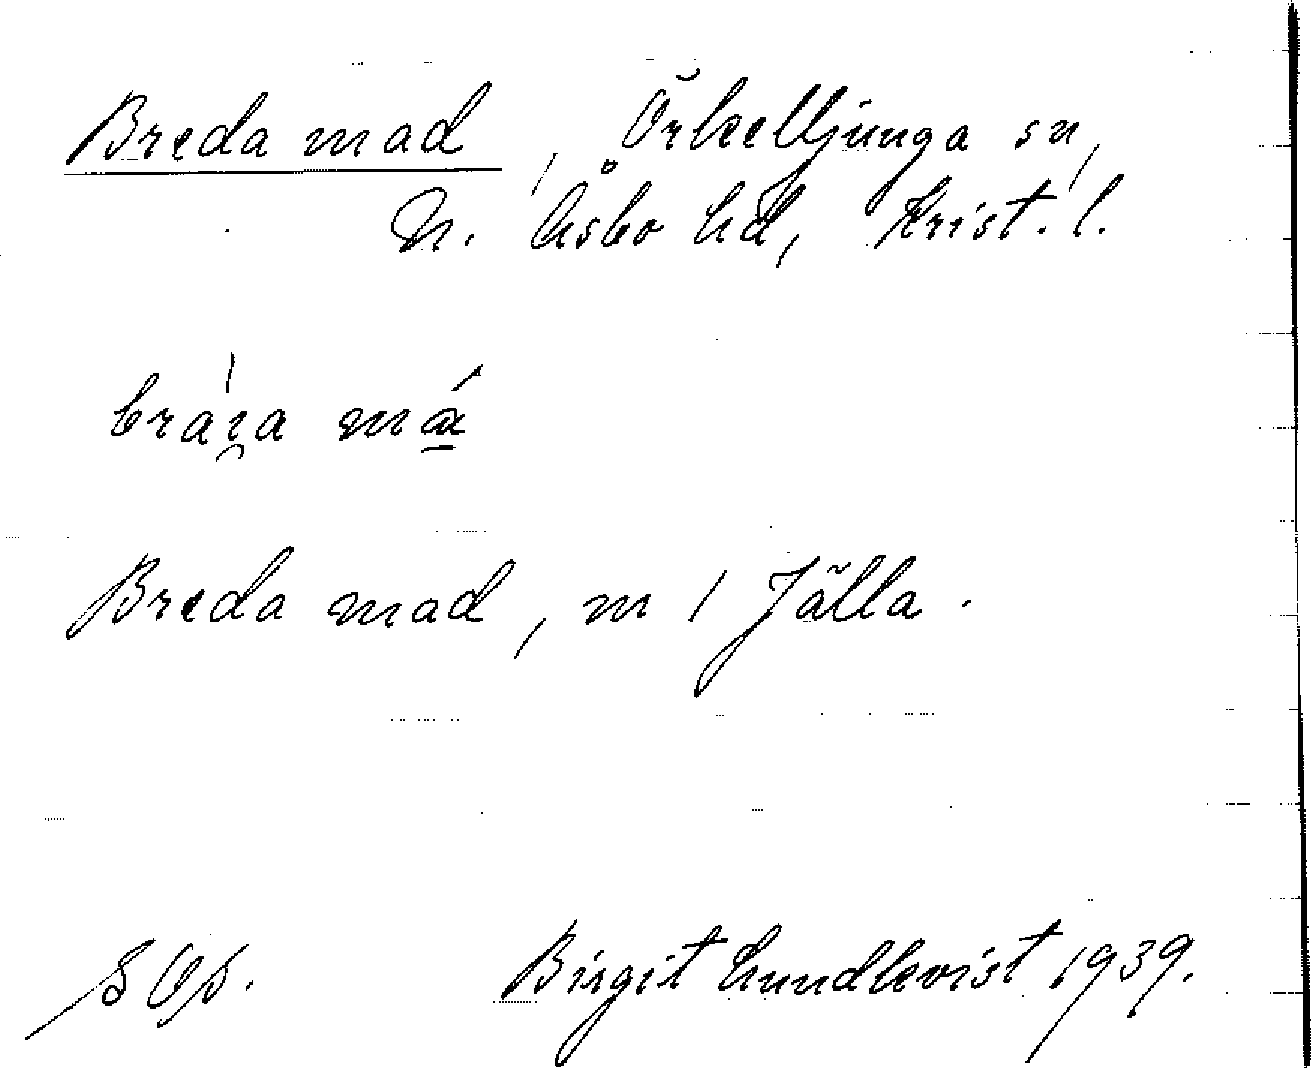 Breda mad, Örkelljunga sn,
N. Åsbo hd, Krist. l.
Breda mad, m / Jälla.
Birgit Lundkvist 1939.